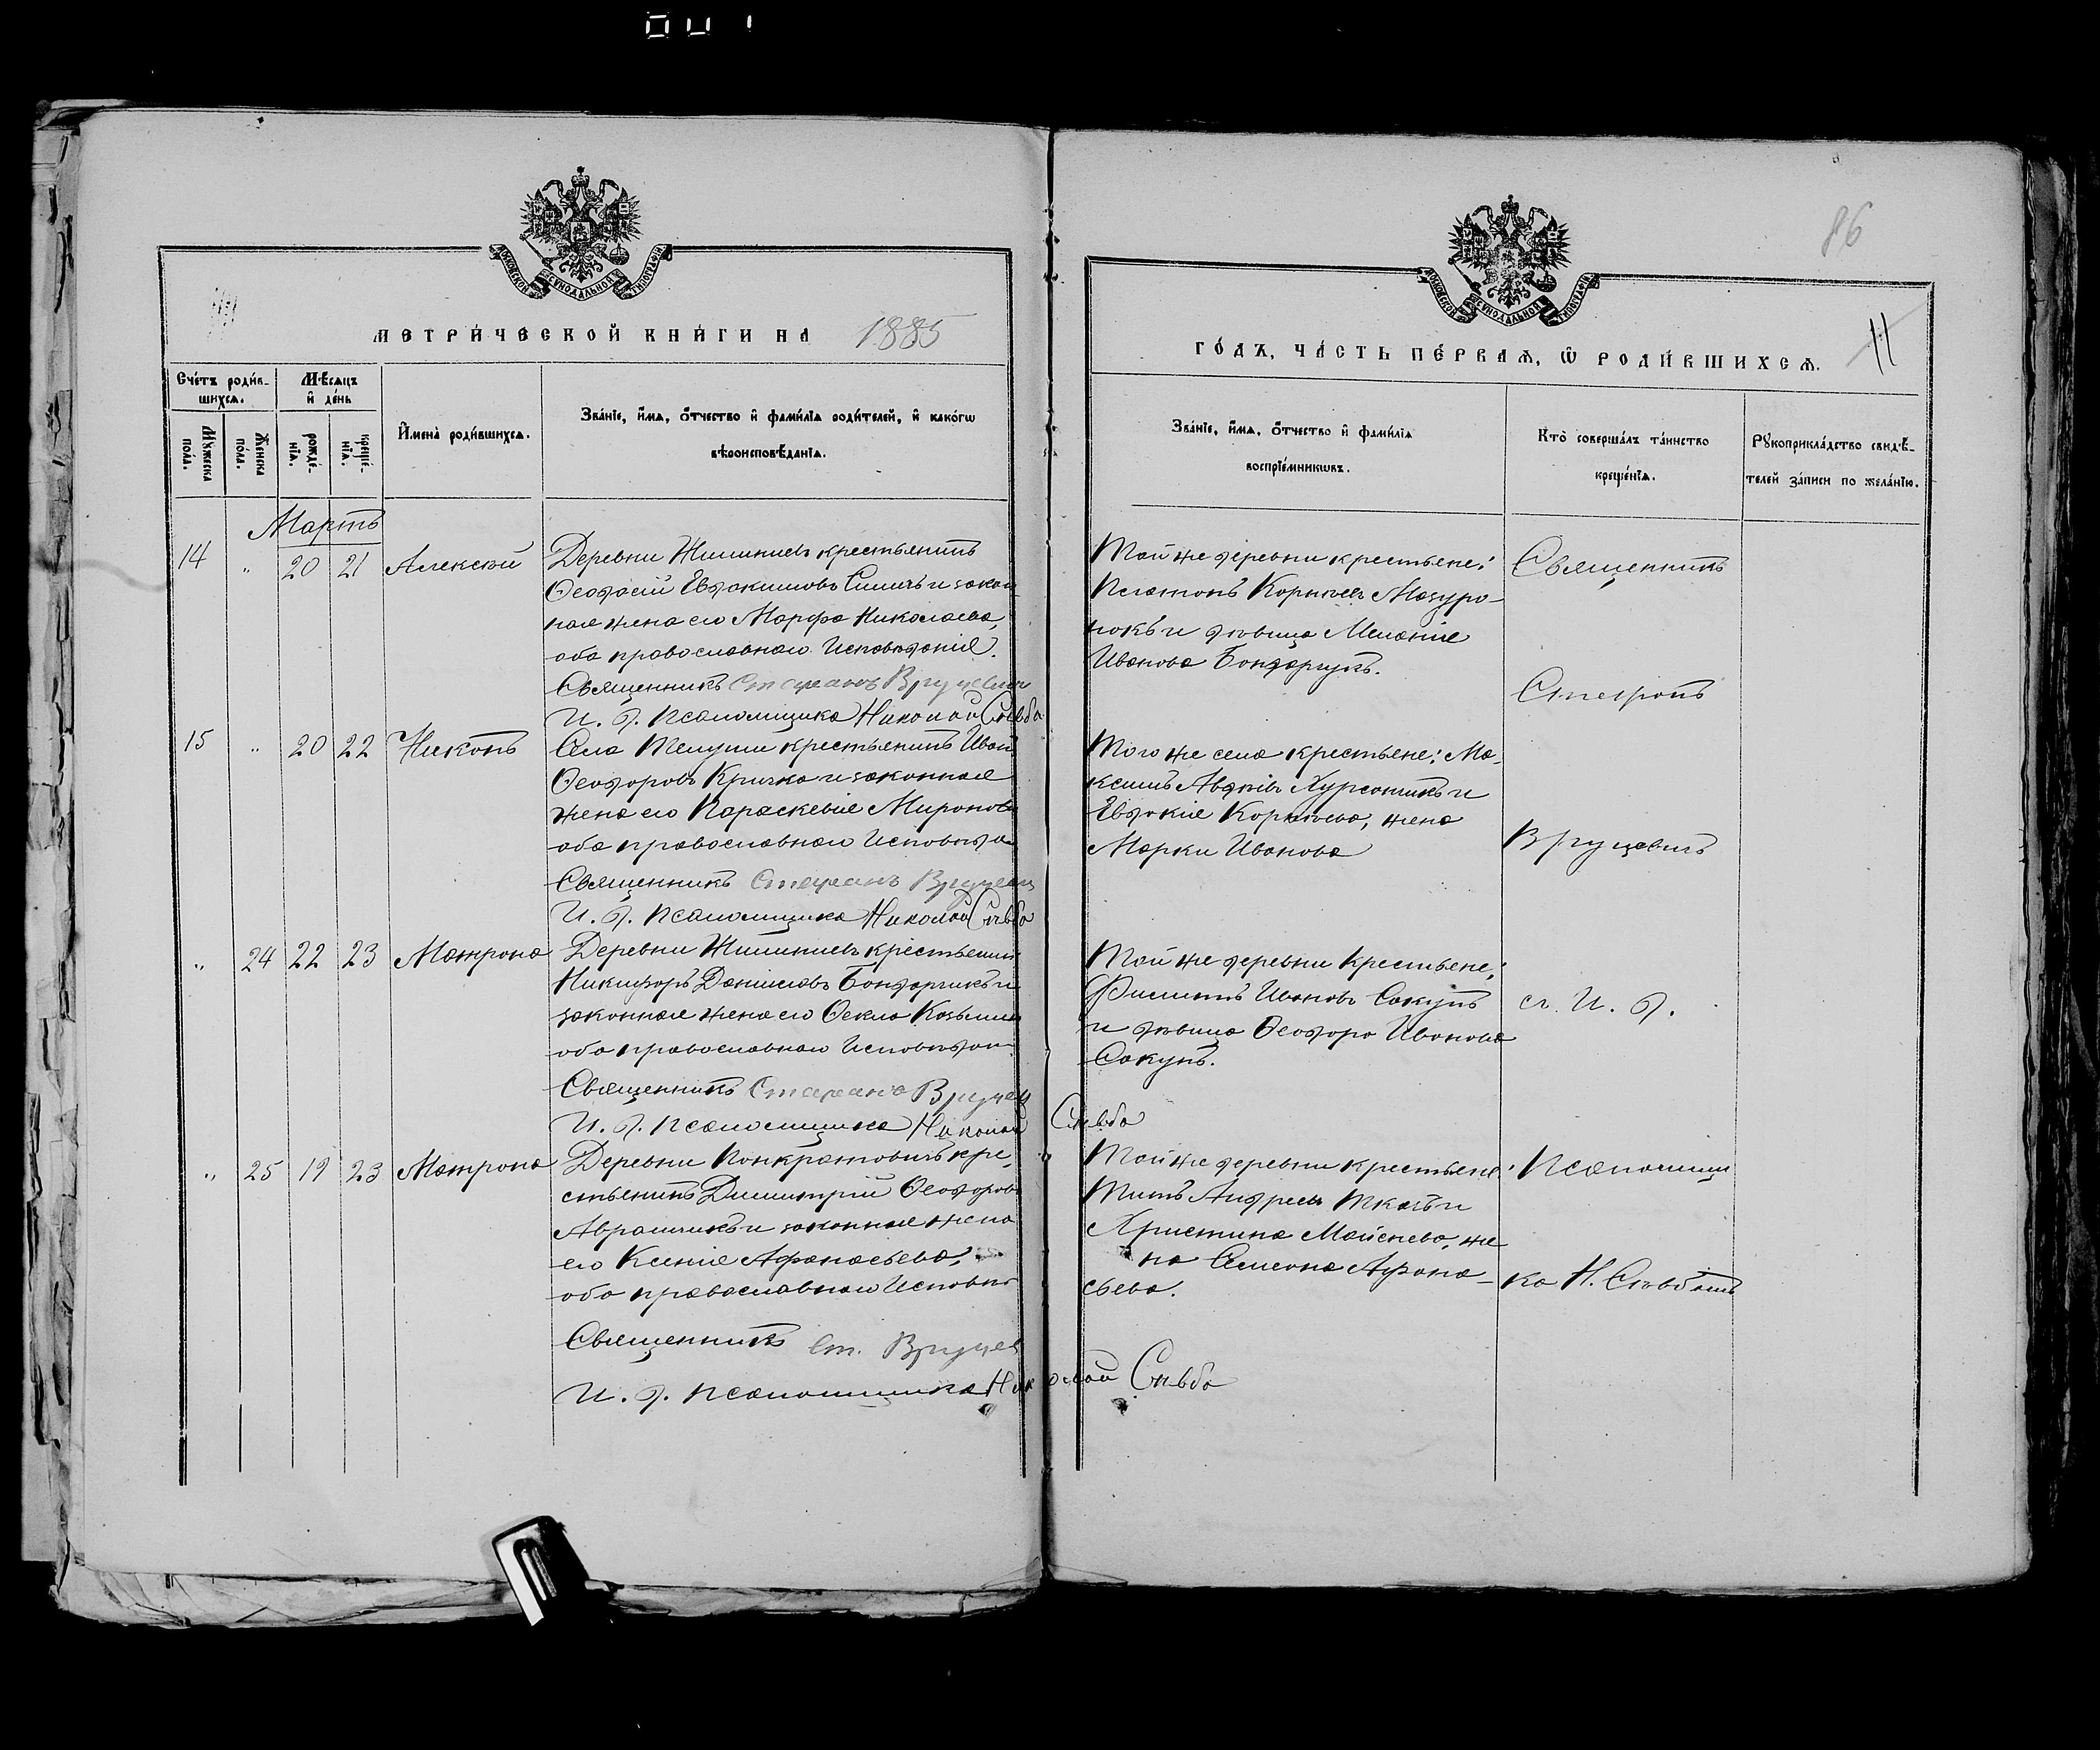 86
11
МОСКОВСКОЙ СѴНОДАЛЬНОЙ ТИПОГРАФІИ
МОСКОВСКОЙ СѴНОДАЛЬНОЙ ТИПОГРАФІИ
МЕТРИ́ЧЕСКОЙ КНИ́ГИ НА 1885
ГО́ДЪ, ЧА́СТЬ ПЕ́РВАѦ, Ѡ҆ РОДИ́ВШИХСѦ.
Сче́тъ роди́в-
шихсѧ.
Мꙋ́жеска по́ла.
Же́нска по́ла.
Мѣ́сѧцъ
и҆ де́нь
рожде́-
нїѧ.
креще́-
нїѧ.
И҆мена̀ роди́вшихсѧ.
Зва́нїе, и҆́мѧ, ѻ҆́тчество и҆ фами́лїѧ роди́телей, и҆ како́гѡ
вѣроисповѣ́данїѧ.
Зва́нїе, и҆́мѧ, ѻ҆́тчество и҆ фами́лїѧ
воспрїе́мникѡвъ.
Кто̀ соверша́лъ та́инство
креще́нїѧ.
Рꙋкоприкла́дство свидѣ́-
телей за́писи по жела́нїю.
Мартъ
14 „ 20 21 Алексей
Деревни крестьянинъ
Ѳеодосій Евдокимовъ и закон
ная жена его Марфа Николаева,
оба православнаго Исповѣданія.
Священникъ Стефанъ Вруцевич
И. д. псаломщика Николай Скьба
Той же деревни крестьяне:
Платонъ Корнѣевъ Мазуро-
нокъ и дѣвица Меланія
Иванова Бондарчукъ.
Священникъ
Стефанъ
15 „ 20 22 Никонъ
Села крестьянинъ Иван
Ѳеодоровъ Кричко и законная
жена его Параскевія Миронова
оба православнаго Исповѣда
Священникъ Стефанъ Вруцевич
И. д. псаломщика Николай Скьба
Того же села крестьяне: Ма-
ксимъ и
Евдокія Корнѣева, жена
Марки Иванова
Вруцевичъ
„ 24 22 23 Матрона
Деревни крестьянин
Никифоръ Даниловъ Бондарчикъ и
законная жена его Ѳекла Козьмина
оба православнаго Исповѣдан
Священникъ Стефанъ Вруцев
И. д. псаломщика Николай Скьба
Той же деревни Крестьяне:
Филиппъ Ивановъ Сакунъ
и дѣвица Ѳеодора Иванова
Сакунъ.
съ И. д.
„ 25 19 23 Матрона
Деревни Понкратовичъ кре-
стьянинъ Димитрій Ѳеодоров
Аврамчикъ и законная жена
его Ксенія Афанасьева,
оба православнаго Исповѣ
Священникъ Ст. Вруцев
И. д. псаломщика Николай Скьба
Той же деревни крестьяне:
Титъ Андреевъ Ткачъ и
Христина Мойсеева, же
на Семена Афана-
сьева.
Псаломщи
ка Н. Скьбомъ